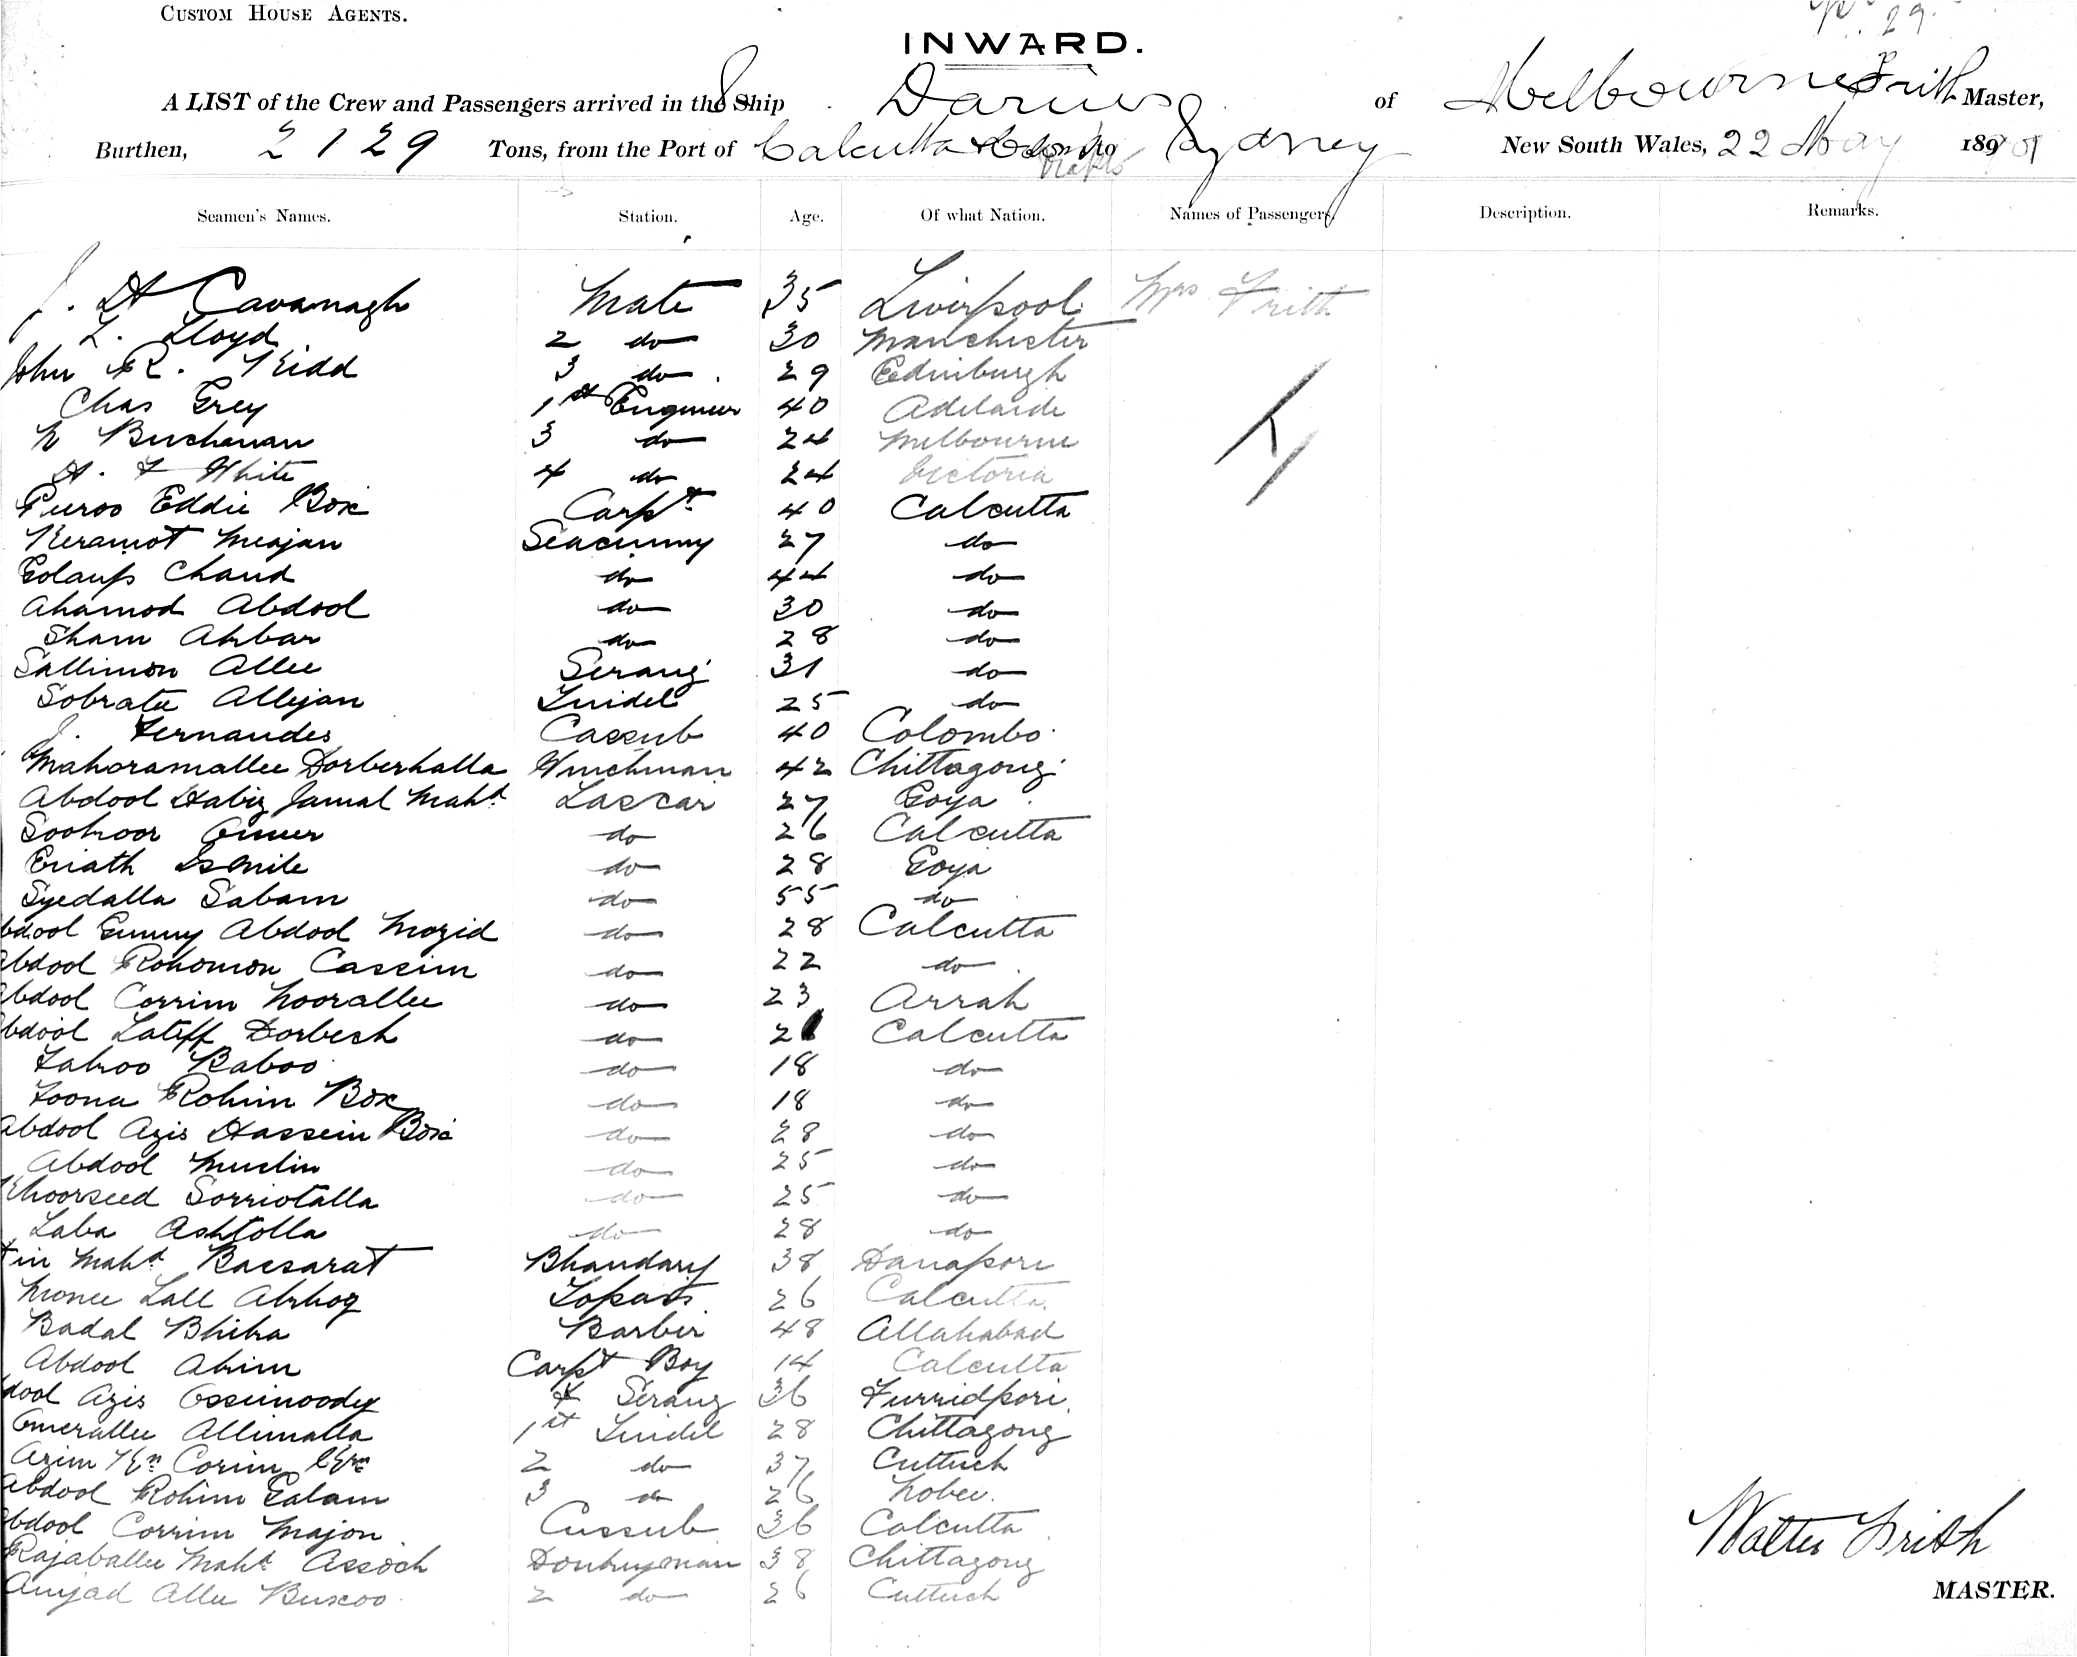 CUSTOM HOUSE AGENTS.
29.
INWARD.
A LIST of the Crew and Passengers arrived in the Ship Darius of Melbourne Frith Master,
Burthen, 2129 Tons, from the Port of Calcutta & Colombo Sydney New South Wales, 22 May 1901
Seamen's Names. Station. Age. Of what Nation. Names of Passengers. Description. Remarks.
J. H Cavanagh Mate 35 Liverpool Mrs Frith
L. Lloyd 2 do 30 Manchester
John R. Kidd 3 do 29 Edinburgh
Chas Grey 1st Engineer 40 Adelaide
N Buchanan 3 do 24 Melbourne
H. F White 4 do 24 Victoria
Puroo Eddie Box Carpt 40 Calcutta
Keramot Meajan Seacunny 27 do
Golaup Chand do 44 do
Ahamod Abdool do 30 do
Sham Akbar do 28 do
Sallimon Allee Serang 31 do
Sobratee Allejan Tindel 25 do
J. Fernandes Cassub 40 Colombo
Mahoramallee Dorberhalla Winchman 42 Chittagong
Abdool Habiz Jamal Maht Lascar 27 Goya
Soohoor Omer do 26 Calcutta
Eriath Ismile do 28 Goya
Syedalla Sabam do 55 do
Abdool Gunny Abdool Mozid do 28 Calcutta
Abdool Rohomon Cassim do 22 do
Abdool Corrim Noorallee do 23 Arrah
Abdool Lateff Dorbesh do 2 Calcutta
Fakoo Baboo do 18 do
Foona Rohim Box do 18 do
Abdool Azis Hassein Box do 28 do
Abdool Muslin do 25 do
Khoorseed Sorriotalla do 25 do
Laba Ashtolla do 28 do
Maht Bacsarat Bhandary 38 Danapore
Monee Lall Topass 26 Calcutta
Badal Bhika Barber 48 Allahabad
Abdool Akim Carpt Boy 14 Calcutta
Abdool Azis Osseinoody F Serang 36 Furridpore
Omerallee Allimalla 1st Tindel 28 Chittagong
Azim Kn Corim Kn 2 do 37 Cuttuck
Abdool Rohim Golam 3 do 26
Abdool Corrim Majon Cussub 36 Calcutta
Rajaballee Maht Assoch Donkeyman 38 Chittagong
Amjad Allee Buxoo 2 do 26 Cuttuck
Walter Frith
MASTER.